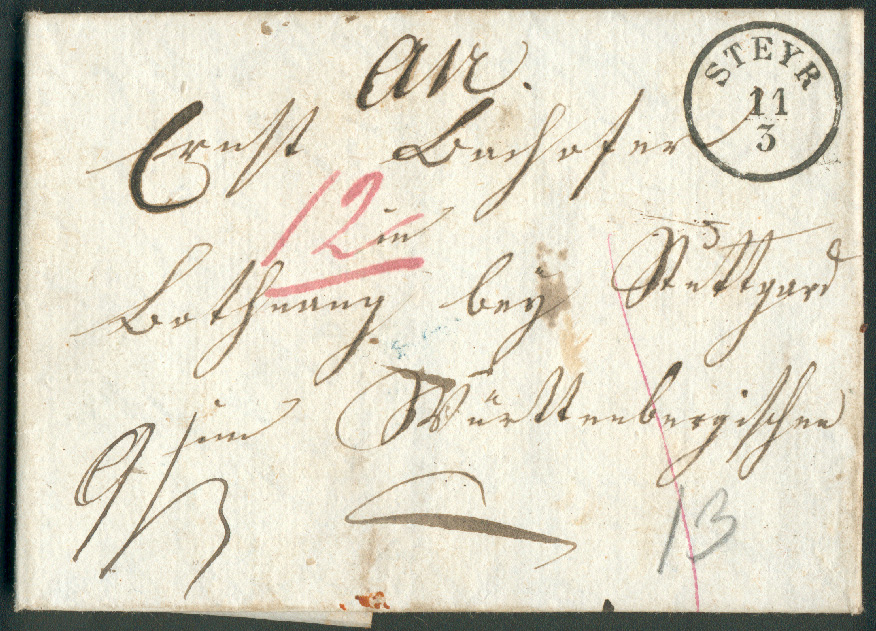 An.
STEYR
11
3
Ernst Bachofer
12
in
Bothnang bey Stuttgard
im Württenbergischen
13